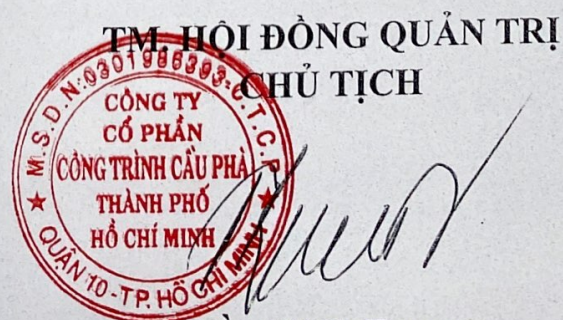 TM. HỘI ĐỒNG QUẢN TRỊ
CHỦ TỊCH
M.S.D.N:0301986393-C.T.C.P
CÔNG TY
CỔ PHẦN
CÔNG TRÌNH CẦU PHÀ
THÀNH PHỐ
HỒ CHÍ MINH
QUẬN 10-TP. HỒ CHÍ MINH